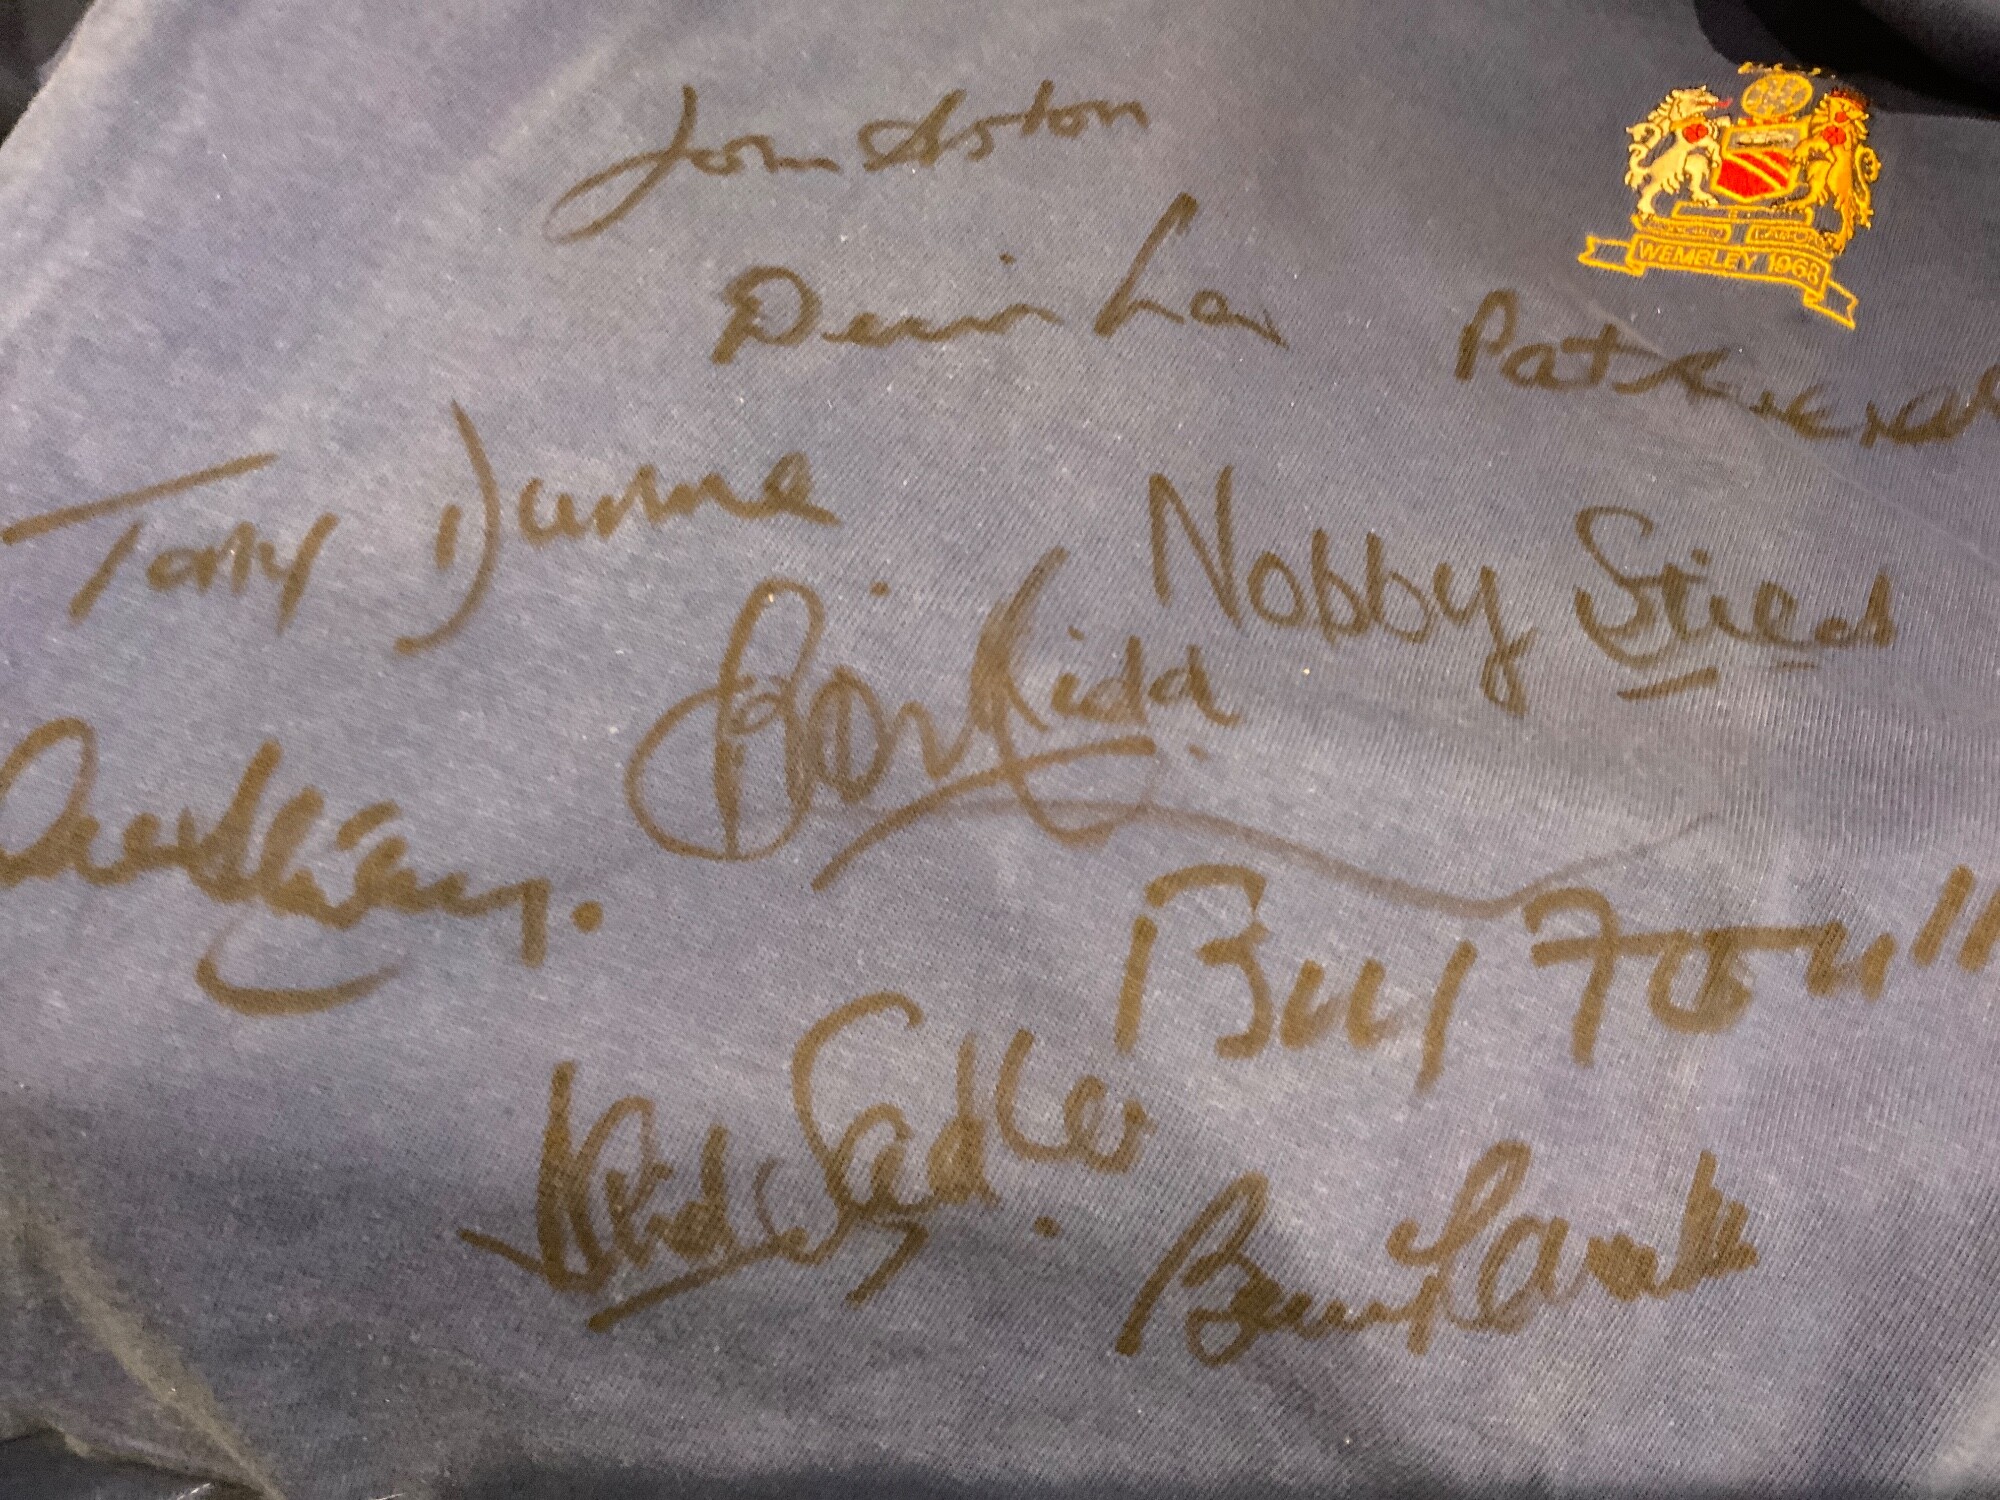 John Aston
WEMBLEY 1968
Denis Law
Pat Crerand
Tony Dunne
Nobby Stiles
Brian Kidd
Bill Foulkes
David Sadler